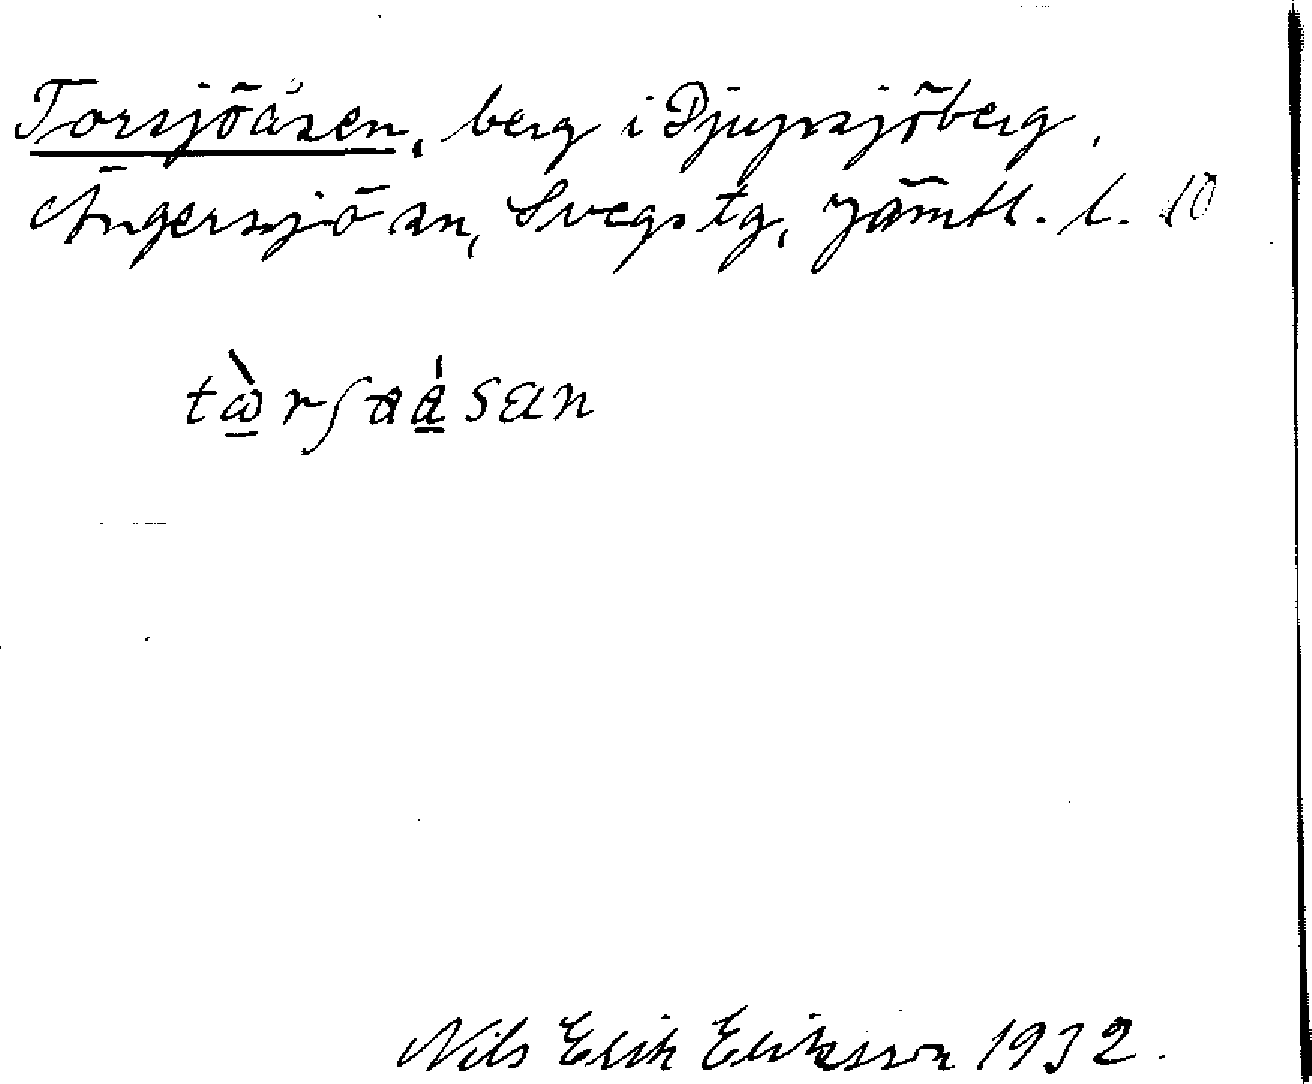 Torsjöåsen, berg i Djupsjöberg,
Ängersjö sn, Svegs tg, Jämtl. l. 10
Nils Erik Eriksson 1932.